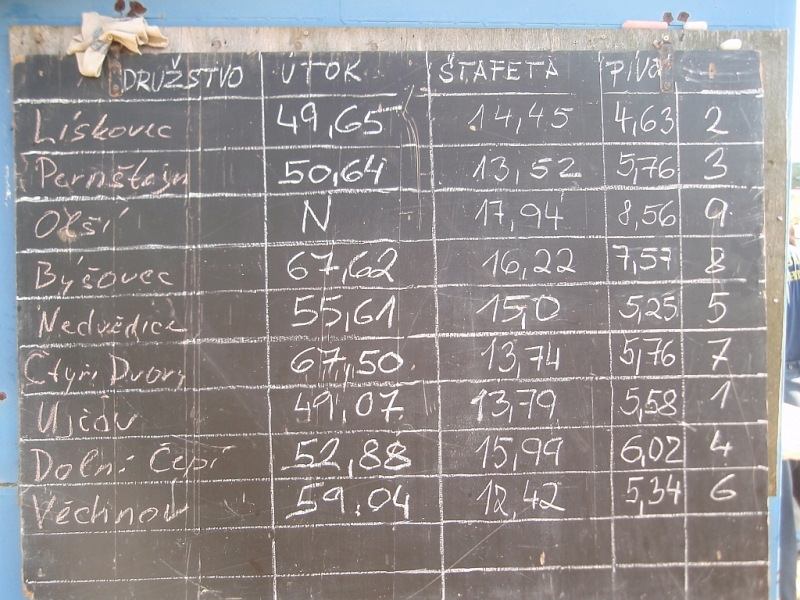 DRUŽSTVO ÚTOK ŠTAFETA PIVO
Lískovec 49,65 14,45 4,63 2
Pernštejn 50,64 13,52 5,76 3
Olší N 17,94 8,56 9
Býšovec 67,62 16,22 7,57 8
Nedvědice 55,61 15,0 5,25 5
Čtyři Dvory 67,50 13,74 5,76 7
Ujčov 49,07 13,79 5,58 1
Dolní Čepí 52,88 15,99 6,02 4
Věchnov 59.04 12,42 5,34 6